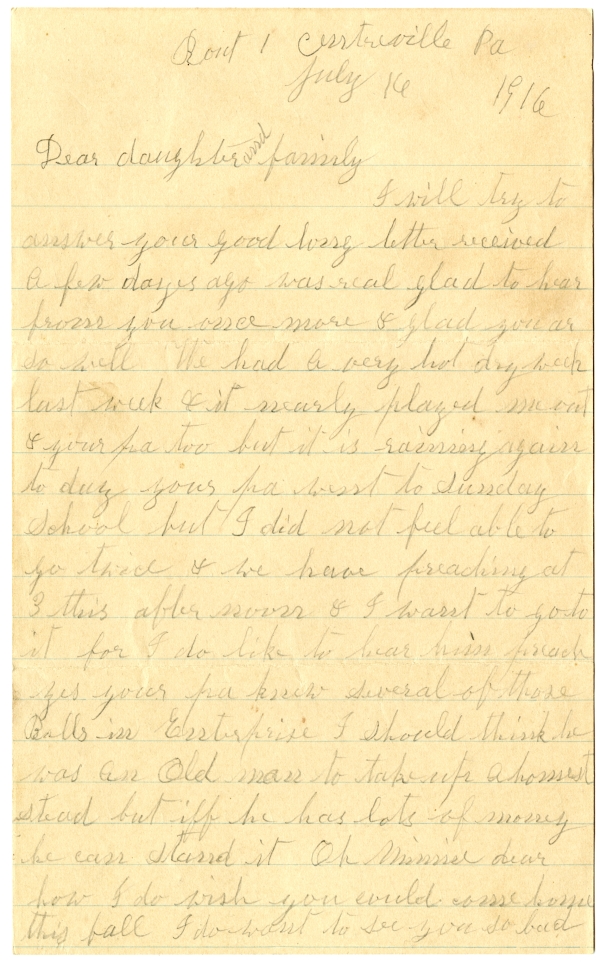 Rout 1 Centreville Pa
July 16 1916
Dear daughter and family
I will try to
answer your good long letter received
a few dayes ago was real glad to hear
from you once more & glad you ar
so well We had a very hot dry week
last week & it nearly played me out
& your pa too but it is raining again
to day your pa went to Sunday
School but I did not feel able to
go twice & we have preaching at
3 this after noon & I want to go to
it for I do like to hear him preach
yes your pa knew several of those
Balls in Enterprise I should think he
was an Old man to take up a homest
stead but iff he has lots of money
he can stand it Oh Minnie dear
how I do wish you could come home
this fall I do want to see you so bad